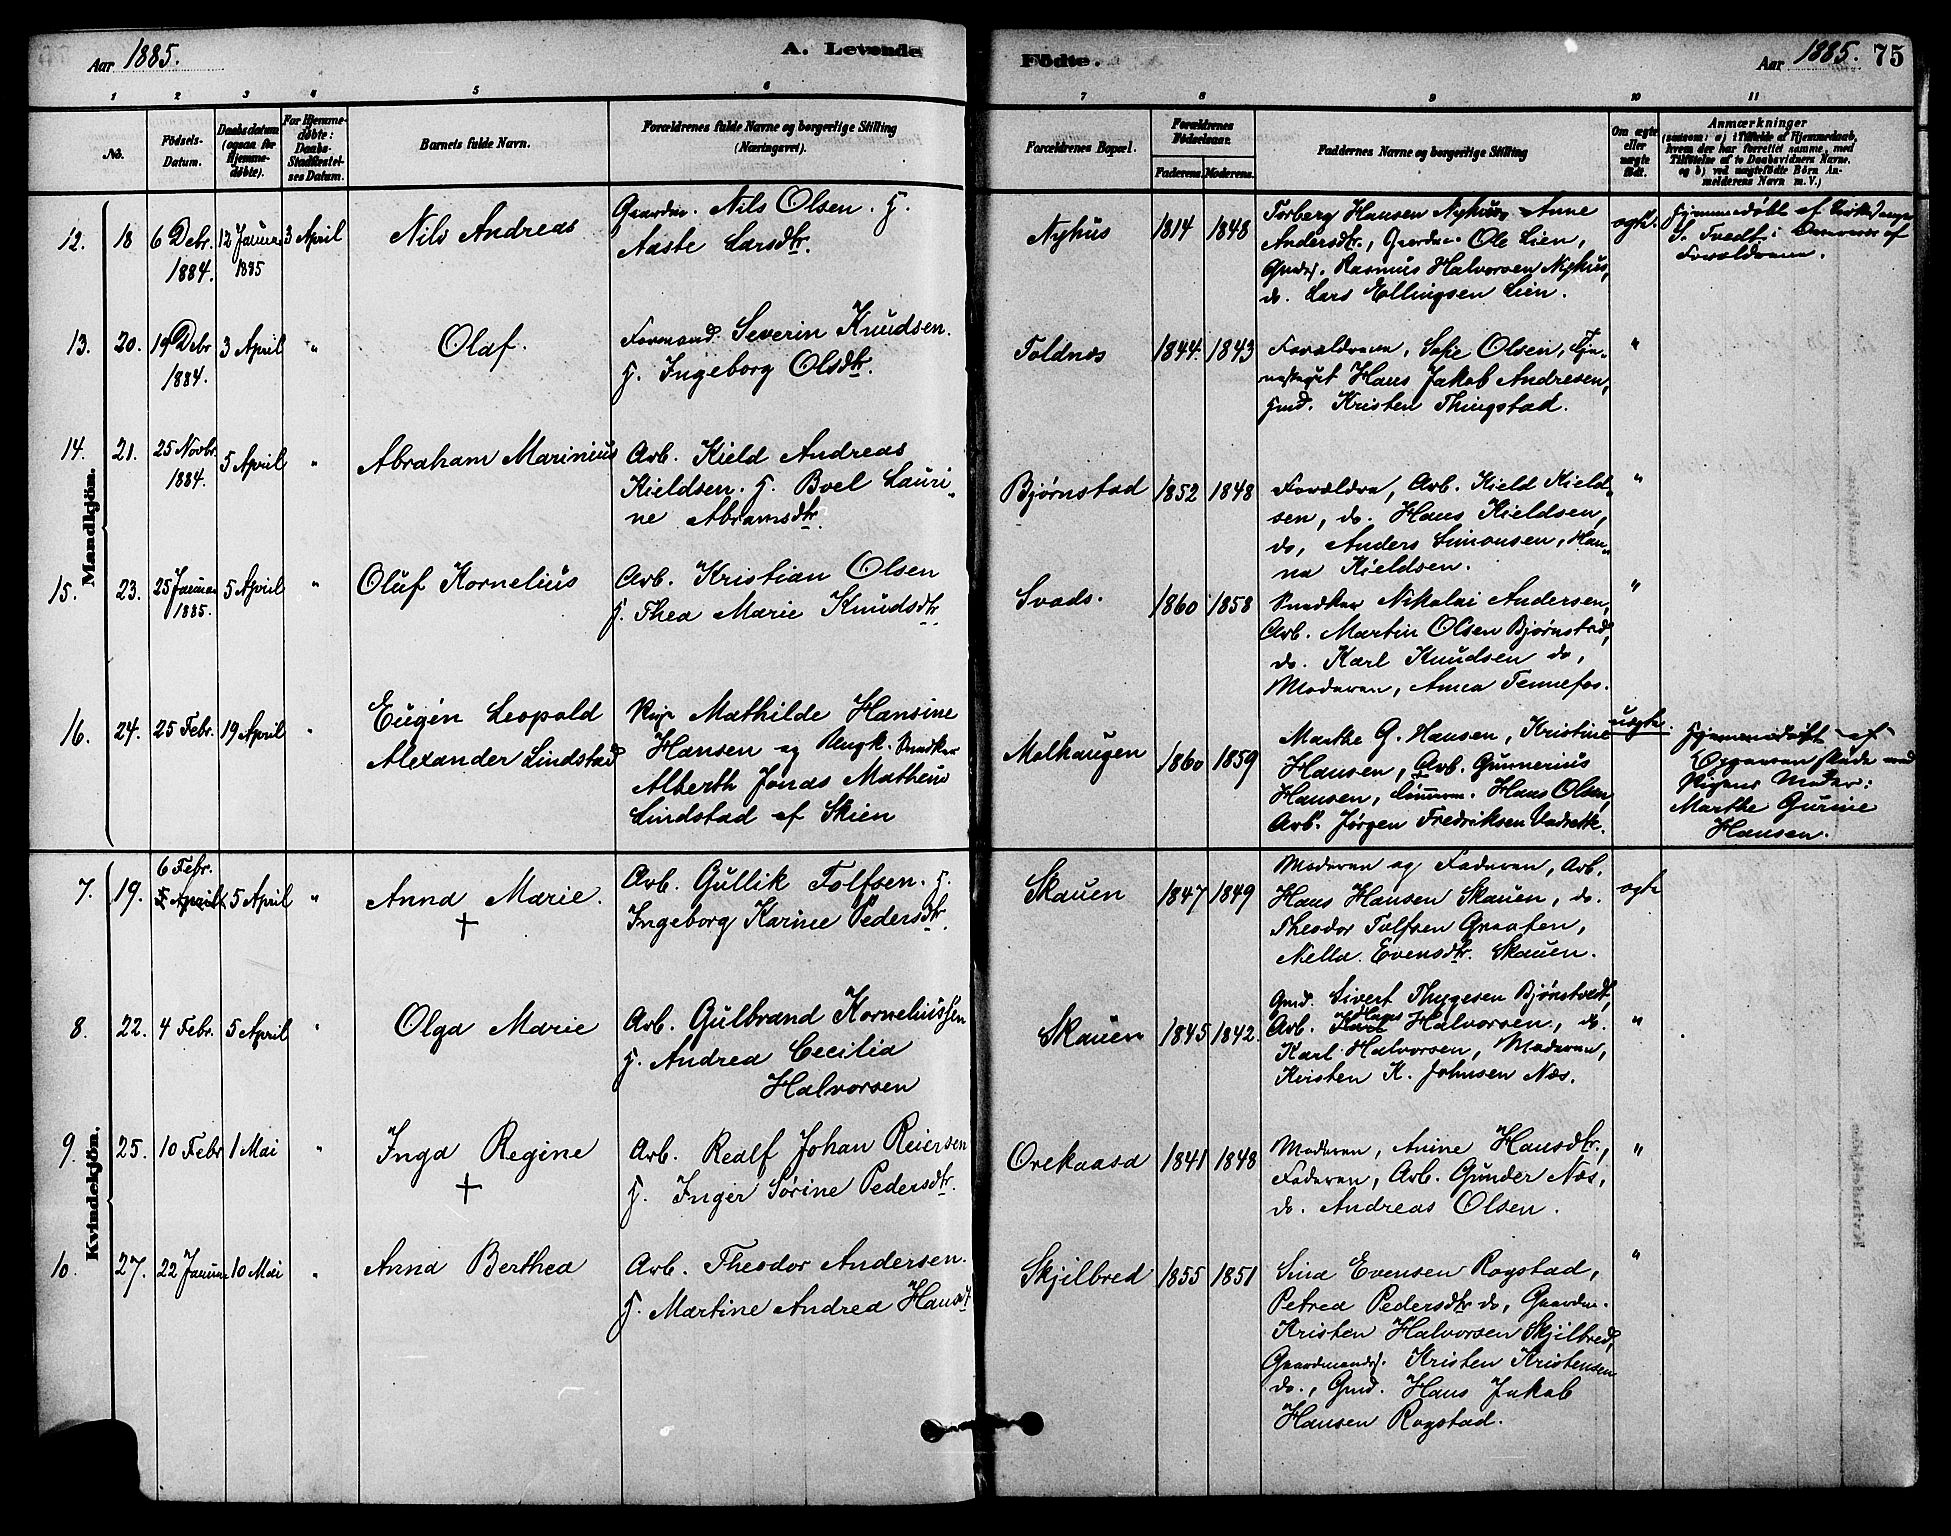 Aar 1885.
A. Levende
Födte.
Aar 1885.
75
1 2 3 4 5 6 7 8 9 10 11
No.
Födsels-
Datum.
Daabsdatum
(ogsaa for
Hjemme-
döbte).
For Hjemme-
døbte:
Daabs-
Stadfæstel-
ses Datum.
Barnets fulde Navn.
Forældrenes fulde Navne og borgerlige Stilling
(Næringsvei).
Forældrenes Bopæl.
Forældrenes
Födselsaar.
Faderens. Moderens.
Faddernes Navne og borgerlige Stilling
Om ægte
eller
uægte
födt.
Anmærkninger
(saasom: a) i Tilfælde af Hjemmedaab,
hvem der har forrettet samme, med
Tilföielse af to Daabsvidners Navne.
og b) ved uægtefödte Börn An-
melderens Navn m. V.)
Mandkjön.
12. 18 6 Debr. 1884. 12 Januar 1885 3 April
Nils Andreas
Gaardm. Nils Olsen. H.
Aaste Larsdtr.
Nyhus 1814 1848
Torberg Hansen Nyhus, Anne
Andersdtr., Gaardm. Ole Lien,
Gmds. Rasmus Halvorsen Nyhus,
do. Lars Ellingsen Lien.
ægte.
Hjemmedøbt af Kirkesanger
S. Tvedt i Nærværelse af
Forældrene.
13. 20. 19 Debr 1884. 3 April "
Olaf.
Formand. Severin Knudsen.
H. Ingeborg Olsdtr.
Toldnæs 1844 1843
Forældrene, Sofie Olsen, Tje-
nestegut Hans Jakob Andresen,
Gmd. Kristen Thingstad.
"
14. 21. 25 Novbr. 1884. 5 April "
Abraham Marinius
Arb. Kield Andreas
Kieldsen. H. Boel Lauri-
ne Abramsdtr.
Bjørnstad 1852 1848
Forældre, Arb. Kield Kield-
sen, do. Hans Kieldsen,
do, Anders Simonsen, Han-
na Kieldsen.
"
15. 23. 25 Januar 1885. 5 April "
Oluf Kornelius
Arb. Kristian Olsen
H. Thea Marie Knudsdtr.
Svads. 1860 1858
Snedker Nikolai Andersen,
Arb. Martin Olsen Bjørnstad,
do. Karl Knudsen do,
Moderen, Anna Tennefos.
"
16. 24. 25 Febr. 19 April "
Eugén Leopold
Alexander Lindstad
Pige Mathilde Hansine
Hansen og Ungk. Snedker
Alberth Jonas Matheus
Lindstad af Skien
Malhaugen 1860 1859
Marthe G. Hansen, Kristine
Hansen, Arb. Gunnerius
Hansen, Tømmerm. Hans Olsen,
Arb. Jørgen Fredriksen Vadrette.
uægte.
Hjemmedøbt af
Opgaven skede ved
Pigens Moder:
Marthe Gurine
Hansen.
Kvindekjön.
7. 19. 6 Febr. 5 April 5 April "
Anna Marie.
+
Arb. Gullik Tolfsen. H.
Ingeborg Karine Pedersdtr.
Skauen 1847 1849
Moderen og Faderen, Arb.
Hans Hansen Skauen, do.
Theodor Tolfsen Graaten,
Nella Evensdtr. Skauen.
ægte
8. 22. 4 Febr. 5 April "
Olga Marie
Arb. Gulbrand Korneliussen
H. Andrea Cecilia
Halvorsen
Skauen 1845 1842.
Gmd. Sivert Thygesen Bjønstvedt,
Arb. Karl Hans Halvorsen, do.
Karl Halvorsen, Moderen,
Kristen K. Johnsen Næs.
"
9. 25. 10 Febr 1 Mai "
Inga Regine
+
Arb. Realf Johan Reiersen
H. Inger Sørine Pedersdtr.
Orekaasa 1841 1848
Moderen, Anine Hansdtr.,
Faderen, Arb. Gunder Næs,
do. Andreas Olsen.
"
10. 27. 22 Januar 10 Mai "
Anna Berthea
Arb. Theodor Andersen.
H. Martine Andrea Hansdt
Skjilbred 1855 1851
Sina Evensen Rogstad,
Petrea Pedersdtr do, Gaardm.
Kristen Halvorsen Skjilbred,
Gaardmands. Kristen Kristensen
do., Gmd. Hans Jakob
Hansen Rogstad.
"